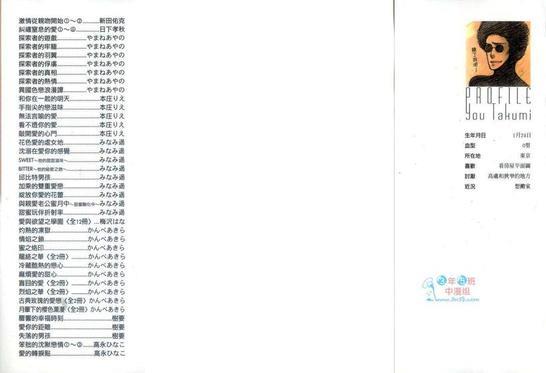 激情從親吻開始①～②……新田佑克
糾纏窒息的愛①～②……日下孝秋
探索者的遊戲……やまねあやの
探索者的牢籠……やまねあやの
探索者的羽翼……やまねあやの
探索者的俘虜……やまねあやの
探索者的真相……やまねあやの
探索者的熱情……やまねあやの
異國色戀浪漫譚……やまねあやの
和你在一起的明天……本庄りえ
手指尖的戀滋味……本庄りえ
無法言喻的愛……本庄りえ
看不透你的愛……本庄りえ
敲開愛的心門……本庄りえ
花色愛的處女地……みなみ遥
沈溺在愛你的感覺……みなみ遥
SWEET……みなみ遥
BITTER……みなみ遥
邱比特男孩……みなみ遥
加乘的雙重愛戀……みなみ遥
綻放你愛的花蕾……みなみ遥
與親愛老公蜜月中……みなみ遥
甜蜜玩伴折射率……みなみ遥
愛與欲望之學園〈全12冊〉……梅沢はな
灼熱的凍獄……かんべあきら
情焰之鎖……かんべあきら
蜜之烙印……かんべあきら
籠絡之華〈全2冊〉……かんべあきら
冷藏酷熱的戀心……かんべあきら
麻煩愛的甜心……かんべあきら
盲目的愛〈全2冊〉……かんべあきら
烈焰之華〈全2冊〉……かんべあきら
古典玫瑰的愛戀〈全2冊〉かんべあきら
月華下的櫻色重屋〈全2冊〉かんべあきら
層層的幸福時刻……樹要
愛你的距離……樹要
失落的男孩……樹要
笨拙的沈默戀情①～③……高永ひなこ
愛的轉捩點……高永ひなこ
PROFILE
You Takumi
生年月日 1月24日
血型 O型
所在地 東京
喜歡 看房屋平面圖
討厭 高處和狹窄的地方
近況 想搬家
3年5班
中漫組